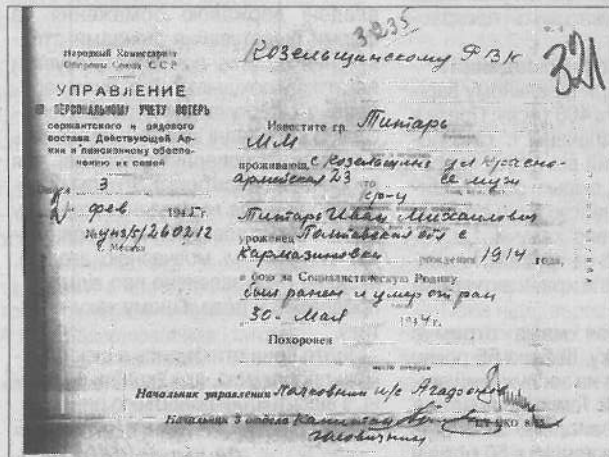 31235
Козельщанскому РВК
321
Народный Комиссариат
Обороны Союза ССР
УПРАВЛЕНИЕ
ПО ПЕРСОНАЛЬНОМУ УЧЕТУ ПОТЕРЬ
сержантского и рядового
состава Действующей Ар-
мии и пенсионному обеспе-
чению их семей
Отдел 3
2 фев 194 г.
№ унз/5/260212
г. Москва
Известите гр. Тинтарь
М М
проживающ. с Козельщина ул Красно-
армейская 23 что ее муж
Тинтарь Иван Михайлович
уроженец Полтавская обл с
Кармазиновка рождения 1914 года,
в бою за Социалистическую Родину
был ранен и умер от ран
„30“ Мая 194 г.
Похоронен
место печати
Начальник управления Полковник и/с
Начальник 3 отдела Капитан